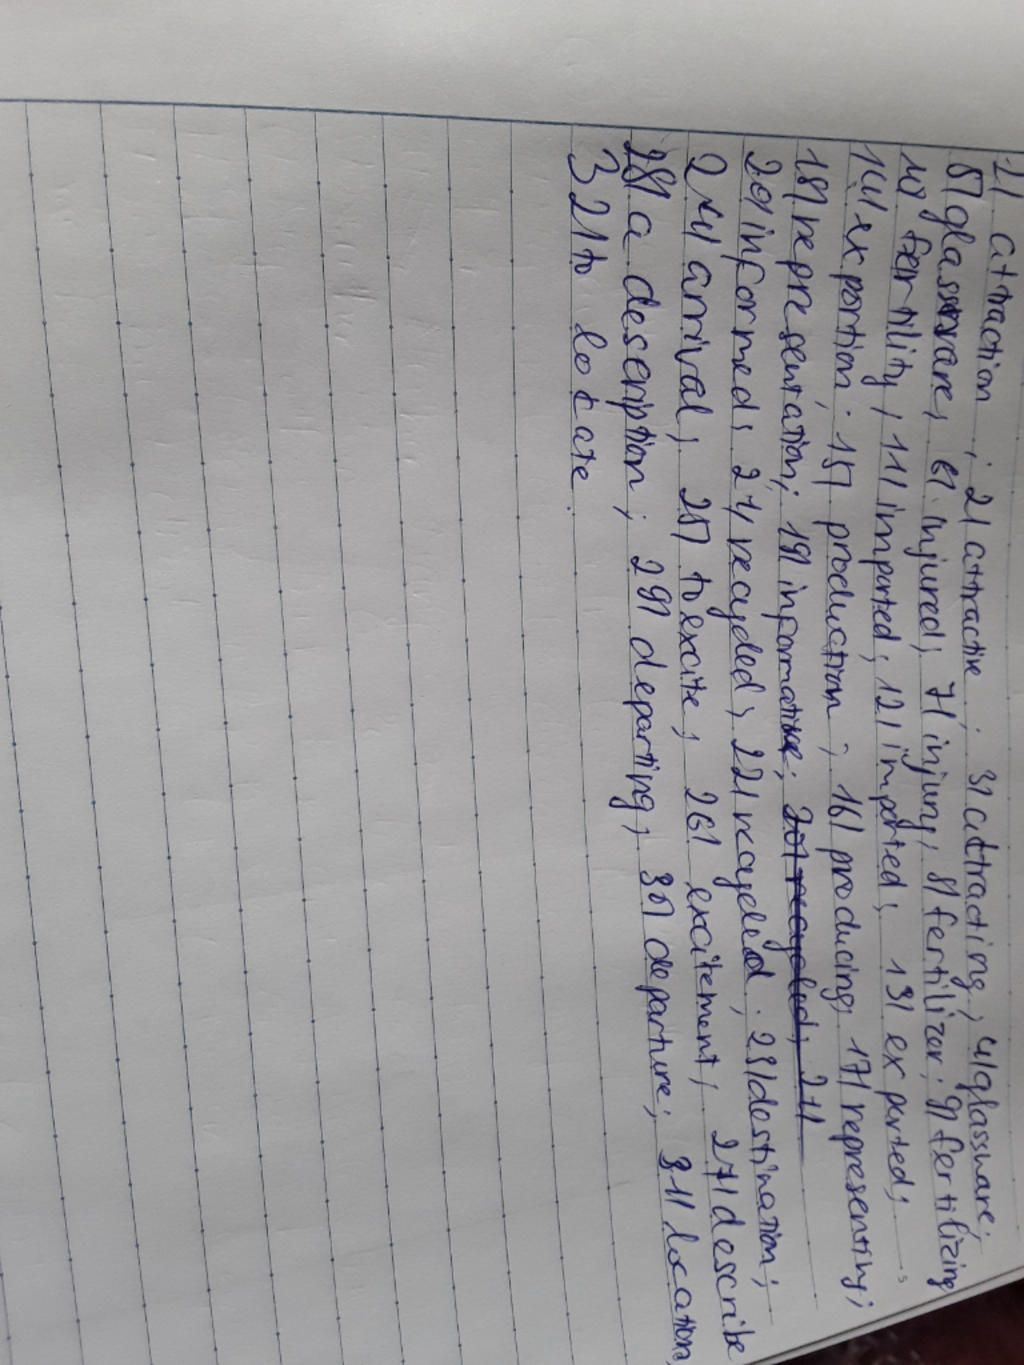 1/ attraction ; 2/ attractive ; 3/ attracting ; 4/ glassware ;
5/ glassware ; 6/ injured ; 7/ injury ; 8/ fertilizer ; 9/ fertilizing
10/ fertility ; 11/ imported ; 12/ imported ; 13/ exported ;
14/ exportion . 15/ production ; 16/ producing ; 17/ representing ;
18/ representation ; 19/ informative ; 20/ recycled ; 21/
20/ informed ; 21/ recycled ; 22/ recycled ; 23/ destination ;
24/ arrival ; 25/ to excite ; 26/ excitement ; 27/ describe
28/ a description ; 29/ departing ; 30/ departure ; 31/ location
32/ to locate .